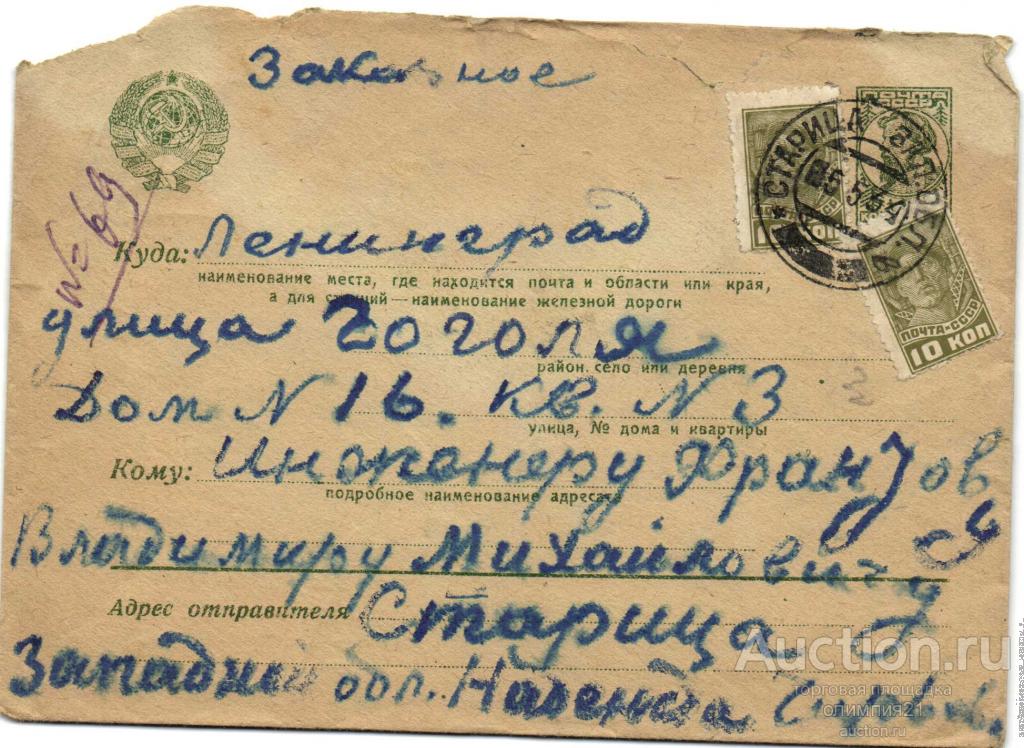 Заказное
ПОЧТА
№ 69
СТАРИЦА
Куда: Ленинград
наименование места, где находится почта и области или края,
а для станций — наименование железной дороги
ПОЧТА-СССР
10 КОП
улица Гоголя
район, село или деревня
Дом N 16. кв. N 3
улица, № дома и квартиры
Кому: Инженеру Францов
подробное наименование адресата
Владимиру Михайловичу
Адрес отправителя Старица
Западной обл.
Auction.ru
торговая площадка
олимпия21
auction.ru